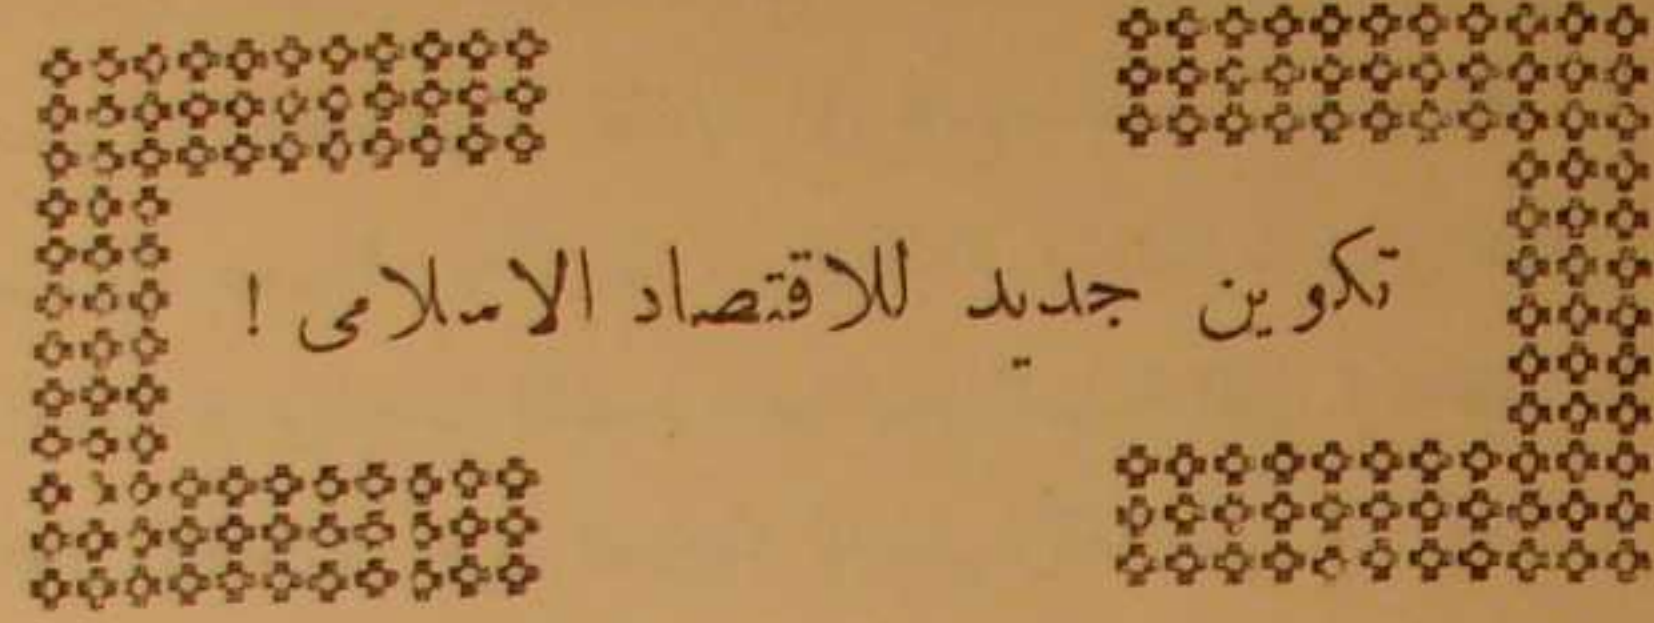 تكوين جديد للاقتصاد الاسلامى !